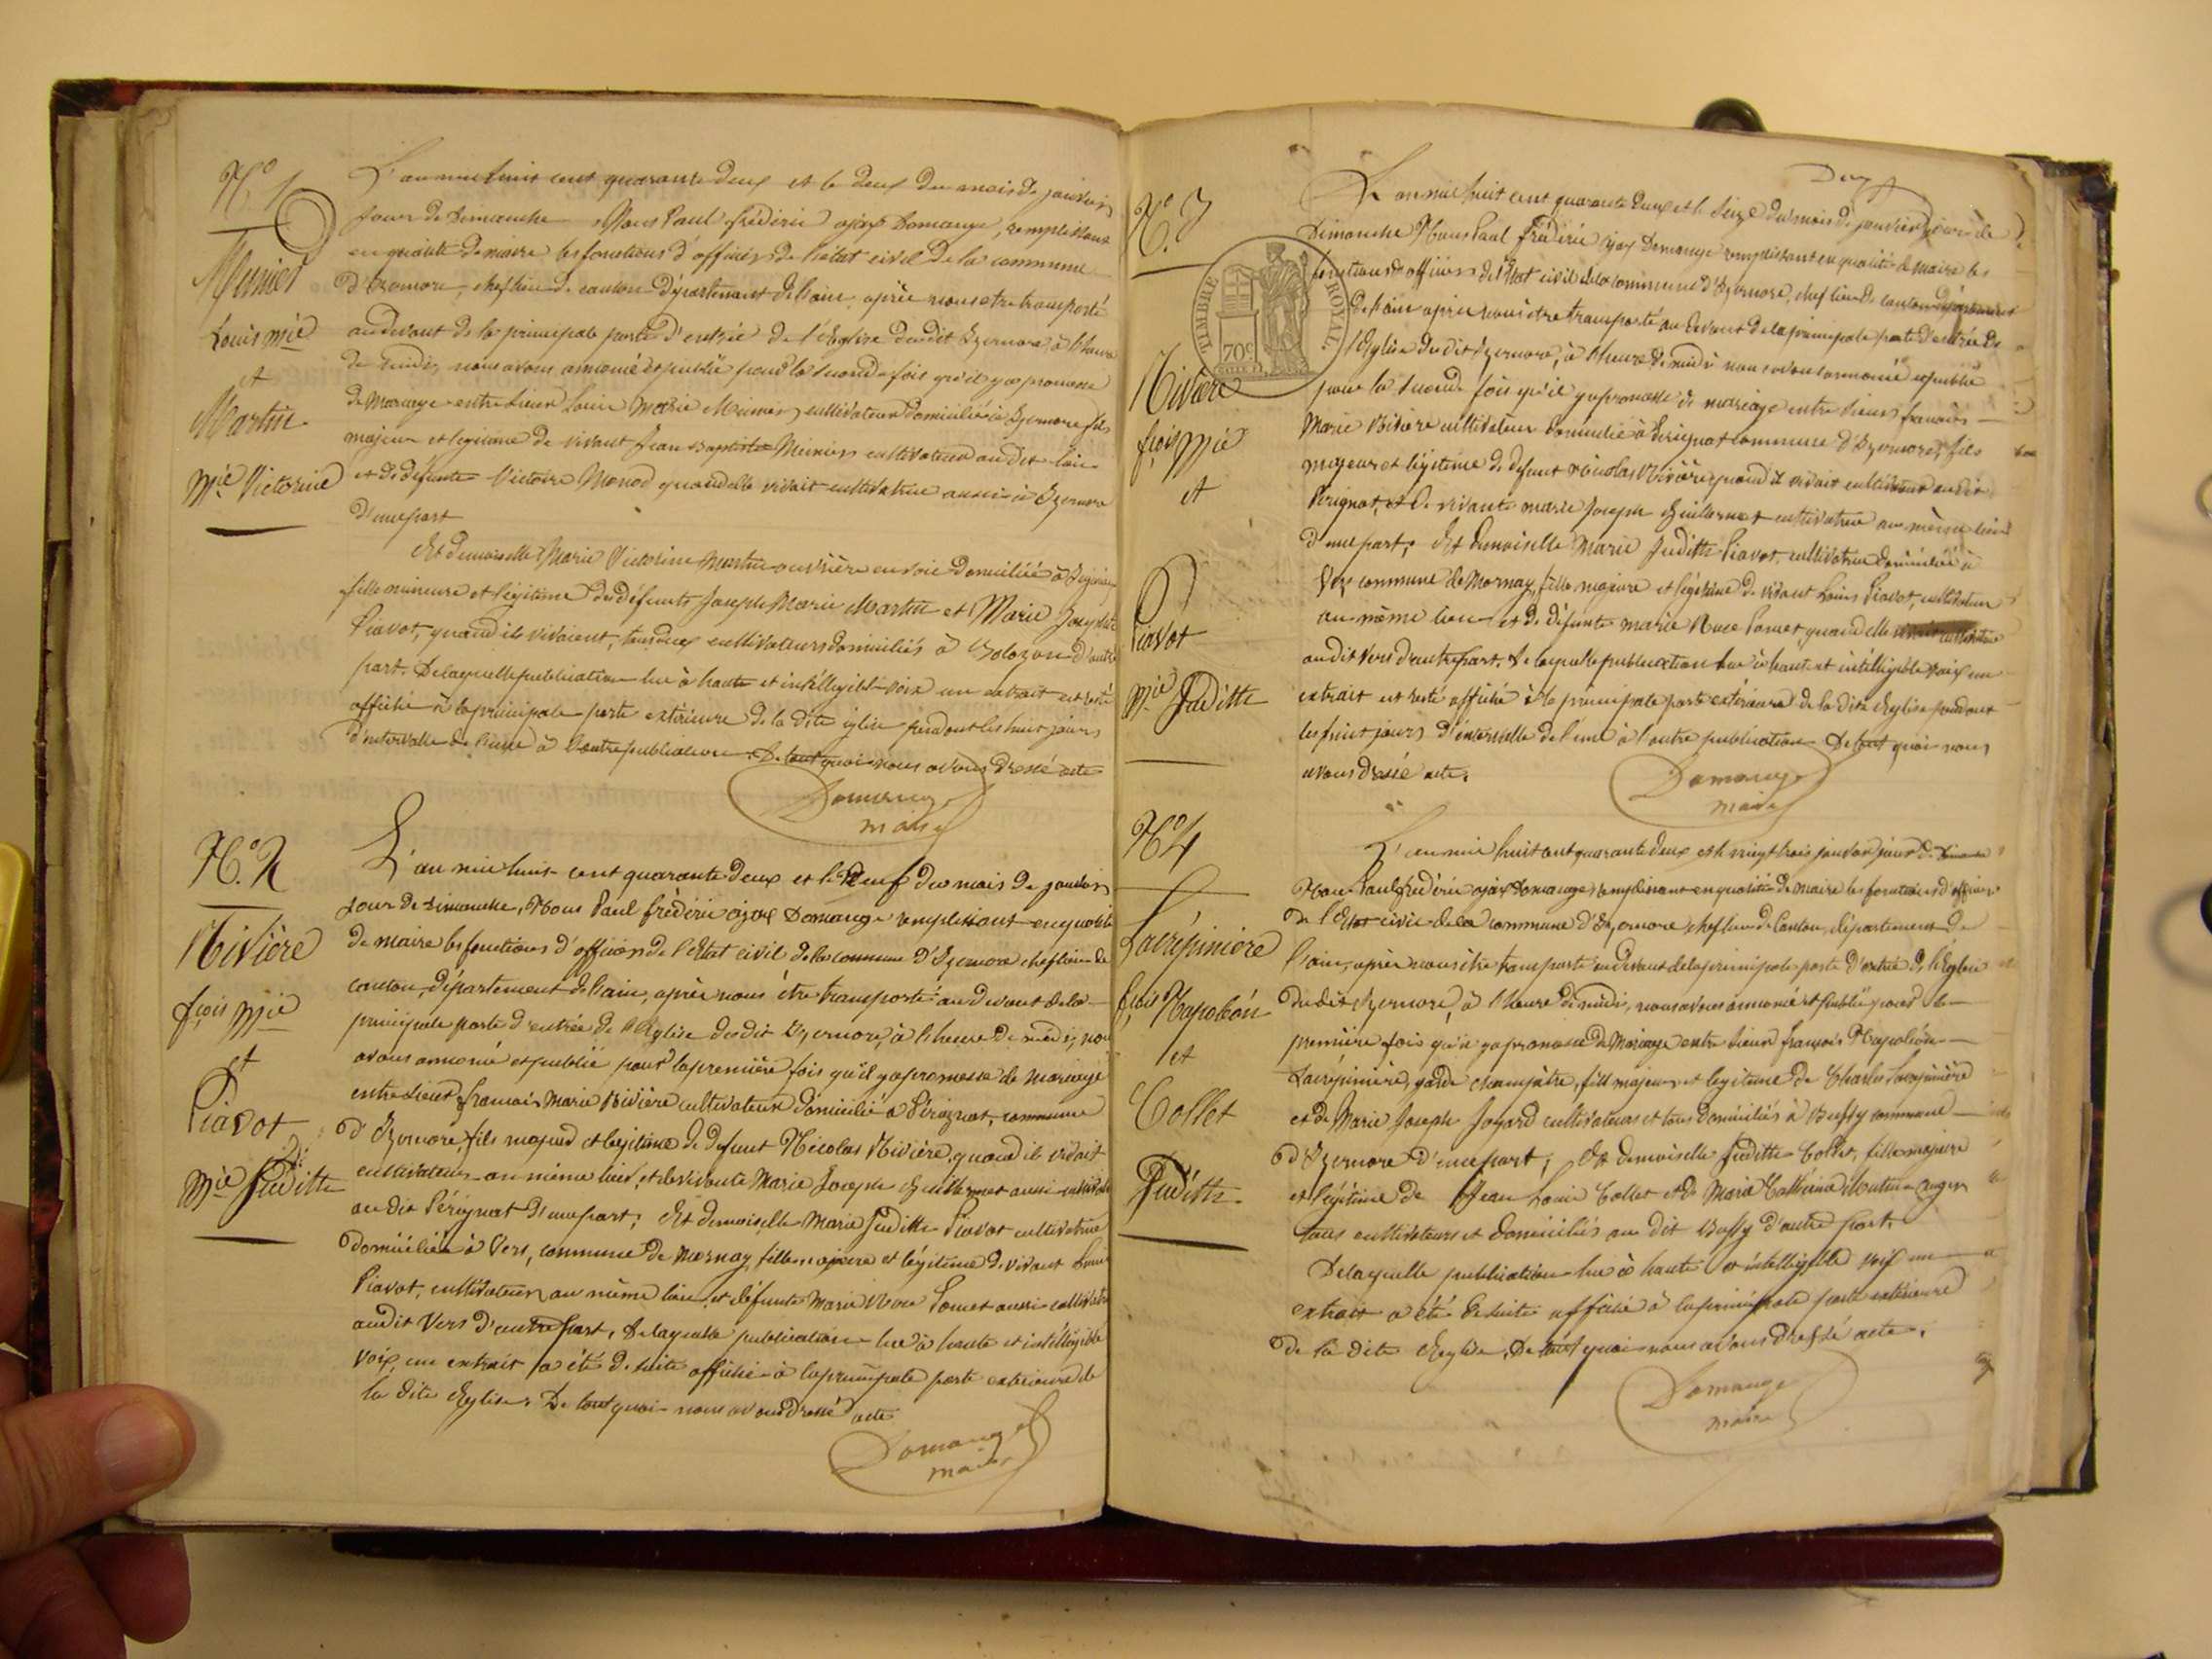 N.° 1
Munier
Louis Mie
et
Martin
Mie Victorine
L'an mil huit cent quarante deux et le deux du mois de janvier
jour de Dimanche Nous Paul frédéric ajax Domange, remplissant
en qualité de maire les fonctions d'officier de l'état civil de la commune
d'Izernore, chef lieu de canton département de l'ain, après nous etre transporté
au devant de la principale porte d'entrée de l'Eglise dudit Izernore, à l'heure
de midi, nous avons annoncé et publié pour la seconde fois qu'il y a promesse
de Mariage entre sieur Louis Marie Munier, cultivateur domicilié à Izernore fils
majeur et légitime de vivant Jean Baptiste Munier cultivateur au dit lieu
et de défunte Victoire Monod quand elle vivait cultivatrice aussi à Izernore
d'une part
Et demoiselle Marie Victorine Martin ouvrière en soie domiciliée à
fille mineure et légitime des défunts Joseph Marie Martin et Marie Josephte
Piavot, quand ils vivaient, tous deux cultivateurs domiciliés à Bolozon d'autre
part. De laquelle publication lue à haute et intelligible voix un extrait est resté
affiché à la principale porte extérieure de la dite église pendant les huit jours
d'intervalle de l'une à l'autre publication. De tout quoi nous avons dressé acte
Domange
maire
N.° 2
Rivière
fçois Mie
et
Piavot
Mie Juditte
L'an mil huit cent quarante deux et le neuf du mois de janvier
jour de Dimanche, Nous Paul frédéric ajax Domange remplissant en qualité
de maire les fonctions d'officier de l'Etat civil de la commune d'Izernore chef lieu de
canton, département de l'ain, après nous être transporté au devant de la
principale porte d'entrée de l'Eglise dudit Izernore, à l'heure de midi, nous
avons annoncé et publié pour la première fois qu'il y a promesse de mariage
entre sieur françois Marie Rivière cultivateur domicilié à Pérignat, commune
d'Izernore, fils majeur et légitime de défunt Nicolas Rivière, quand il vivait
cultivateur au même lieu, et de vivante Marie Joseph Guillermet aussi cultivatrice
au dit Pérignat d'une part; Et demoiselle Marie Juditte Piavot cultivatrice
domiciliée à Vers, commune de Mornay, fille majeure et légitime de vivant Louis
Piavot, cultivateur au même lieu, et défunte Marie Rose Pomet aussi cultivatrice
audit Vers d'autre part, De laquelle publication lue à haute et intelligible
voix, un extrait a été de suite affiché à la principale porte extérieure de
la dite Eglise. De tout quoi nous avons dressé acte
Domange
maire
Deux
N.° 3
Rivière
fçois Mie
et
Piavot
Mie Juditte
TIMBRE ROYAL
70c
L'an mil huit cent quarante deux et le seize du mois de janvier jour de
Dimanche Nous Paul frédéric ajax Domange remplissant en qualité de maire les
fonctions d'officier de l'Etat civil de la commune d'Izernore, chef lieu de canton département
de l'ain après nous être transporté au devant de la principale porte d'entrée de
l'Eglise dudit Izernore, à l'heure de midi nous avons annoncé et publié
pour la seconde fois qu'il y a promesse de mariage entre sieur françois
Marie Rivière cultivateur domicilié à Perignat commune d'Izernore, fils
majeur et légitime de défunt Nicolas Rivière quand il vivait cultivateur au dit
Perignat, et de vivante marie Joseph Guillermet cultivatrice au même lieu
d'une part; Et demoiselle Marie Juditte Piavot, cultivatrice domiciliée à
Vers commune de Mornay, fille majeure et légitime de vivant Louis Piavot, cultivateur
au même lieu et de défunte marie Rose Pomet quand elle vivait cultivatrice
audit Vers d'autre part. De laquelle publication lue à haute et intelligible voix un
extrait est resté affiché à la principale porte extérieure de la dite Eglise pendant
les huit jours d'intervalle de l'une à l'autre publication De tout quoi nous
avons dressé acte.
Domange
maire
N° 4
Lacrepinière
fçois Napoléon
et
Collet
Juditte
L'an mil huit cent quarante deux et le vingt trois janvier jour de Dimanche
Nous Paul frédéric ajax Domange remplissant en qualité de maire les fonctions d'officier
de l'Etat civil de la commune d'Izernore chef lieu de Canton, département de
l'ain, après nous être transporté au devant de la principale porte d'entrée de l'Eglise
dudit Izernore, à l'heure de midi, nous avons annoncé et publié pour la
première fois qu'il y a promesse de Mariage entre sieur françois Napoléon
Lacrepinière, garde champêtre, fils majeur et légitime de Charles Lacrepinière
et de Marie Joseph Jogard cultivateurs et tous domiciliés à Bussy commune
d'Izernore d'une part; Et demoiselle Juditte Collet, fille majeure
et légitime de Jean Louis Collet et de Marie Catherine
tous cultivateurs et domiciliés au dit Bussy d'autre part.
De laquelle publication lue à haute et intelligible voix un
extrait a été de suite affiché à la principale porte extérieure
de la dite Eglise. De tout quoi nous avons dressé acte.
Domange
maire